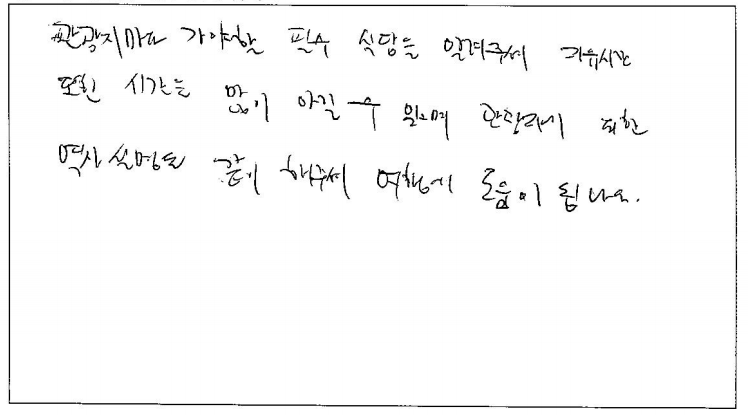 관광지마다 가야할 필수 식당을 알려주셔서 자유시간
또한 시간을 많이 아낄 수 있으며 관광지에 대한
역사 설명도 같이 해주셔서 여행에 도움이 됩니다.